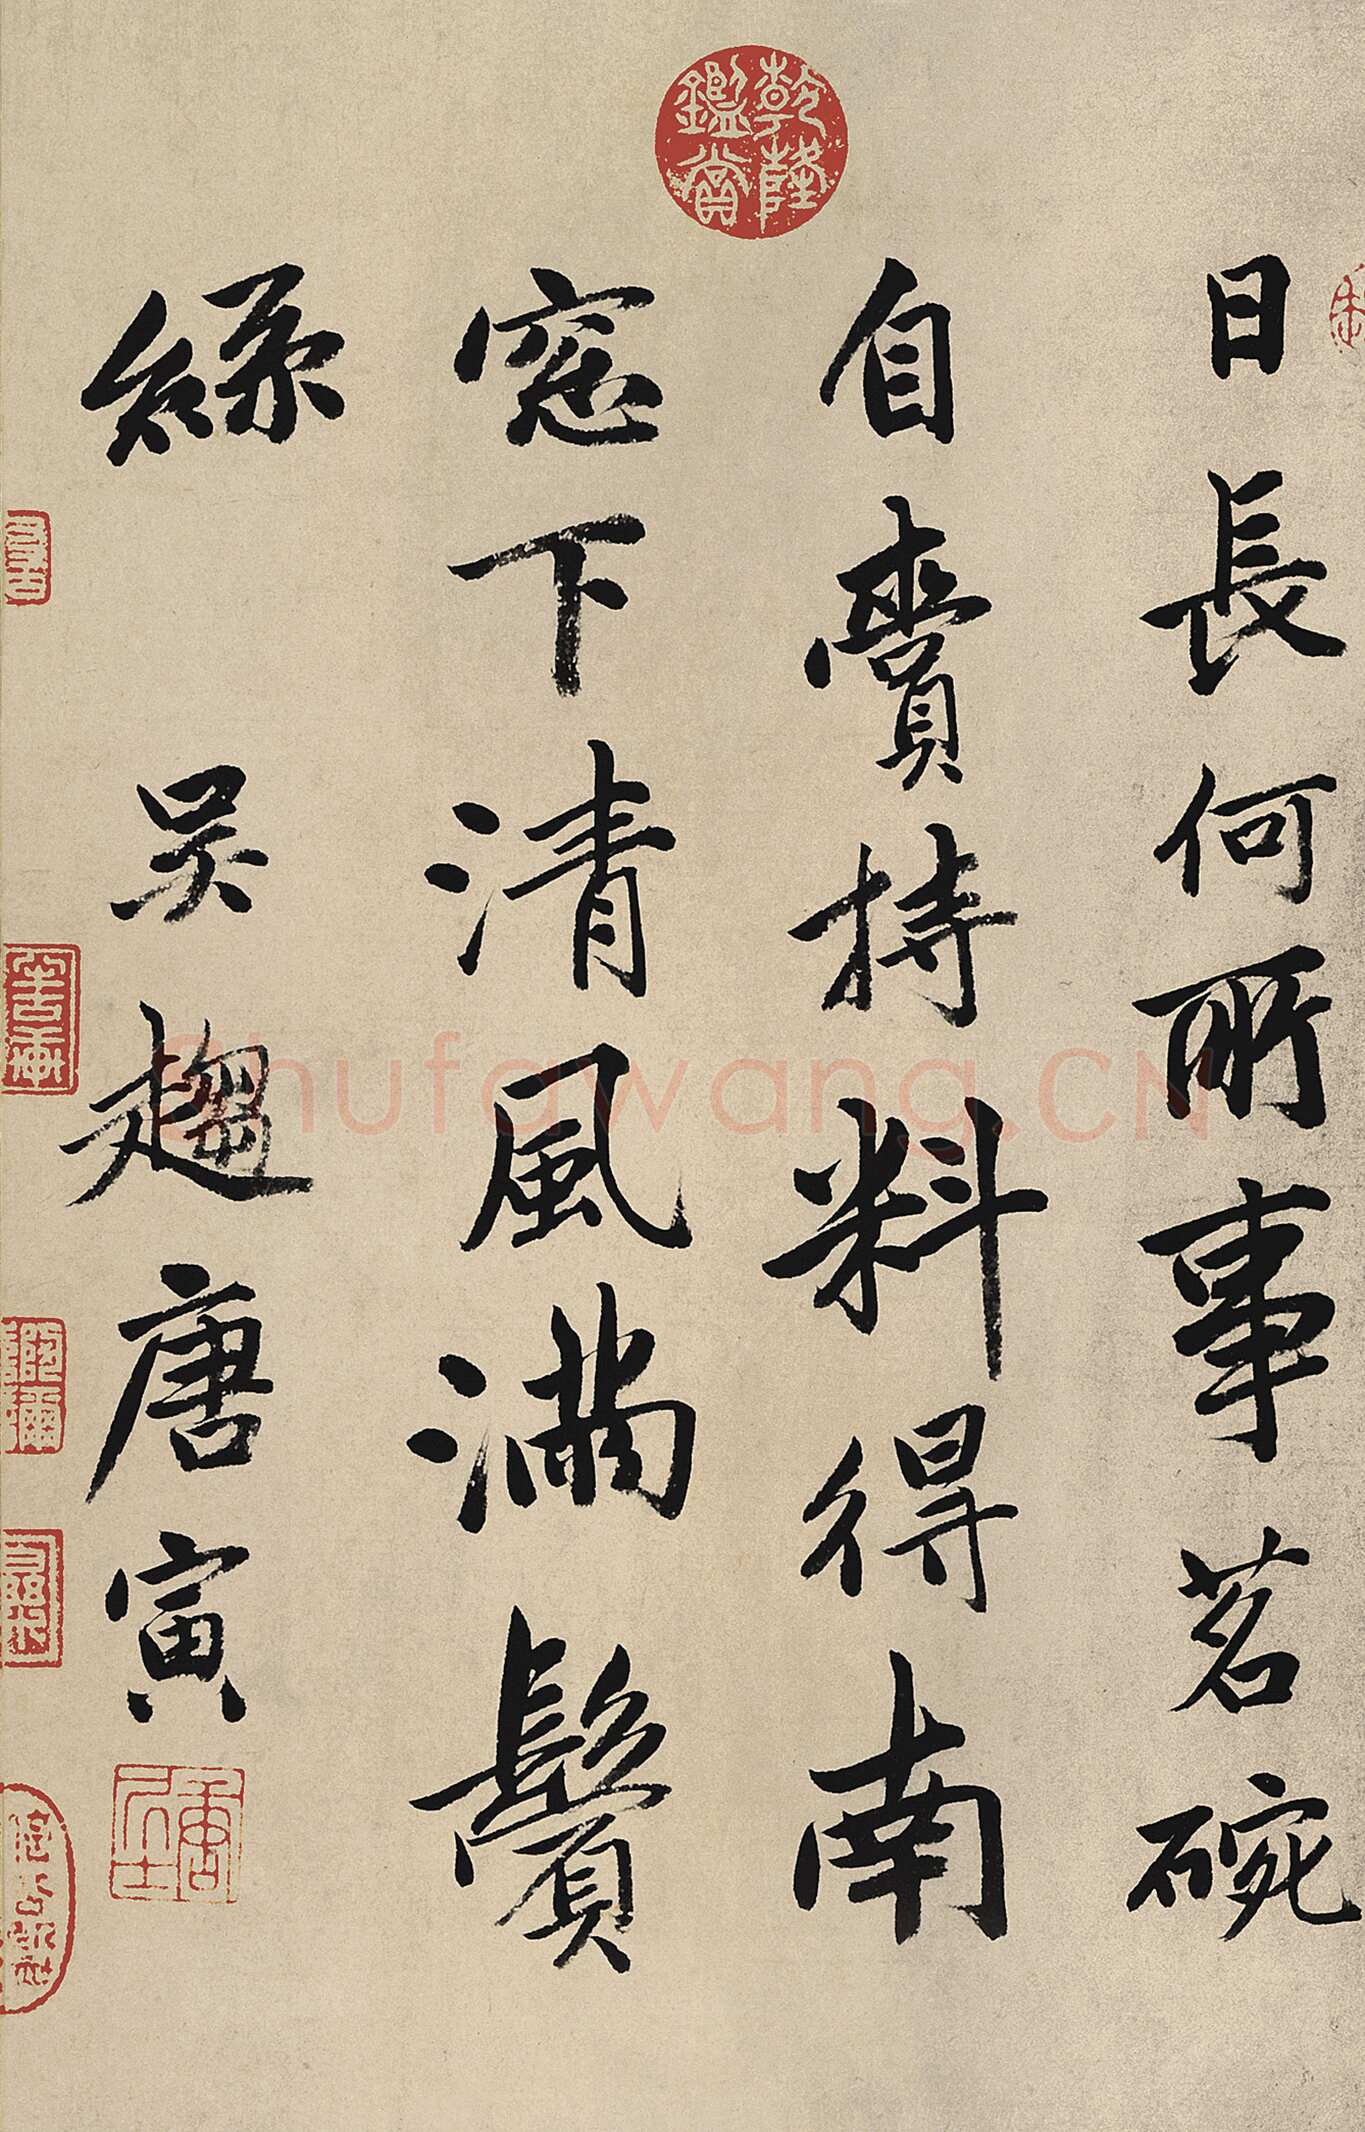 日長何所事茗碗
自賫持料得南
窓下清風滿鬢
絲 吴趨唐寅
乾隆鑑賞
Shufawang.CN